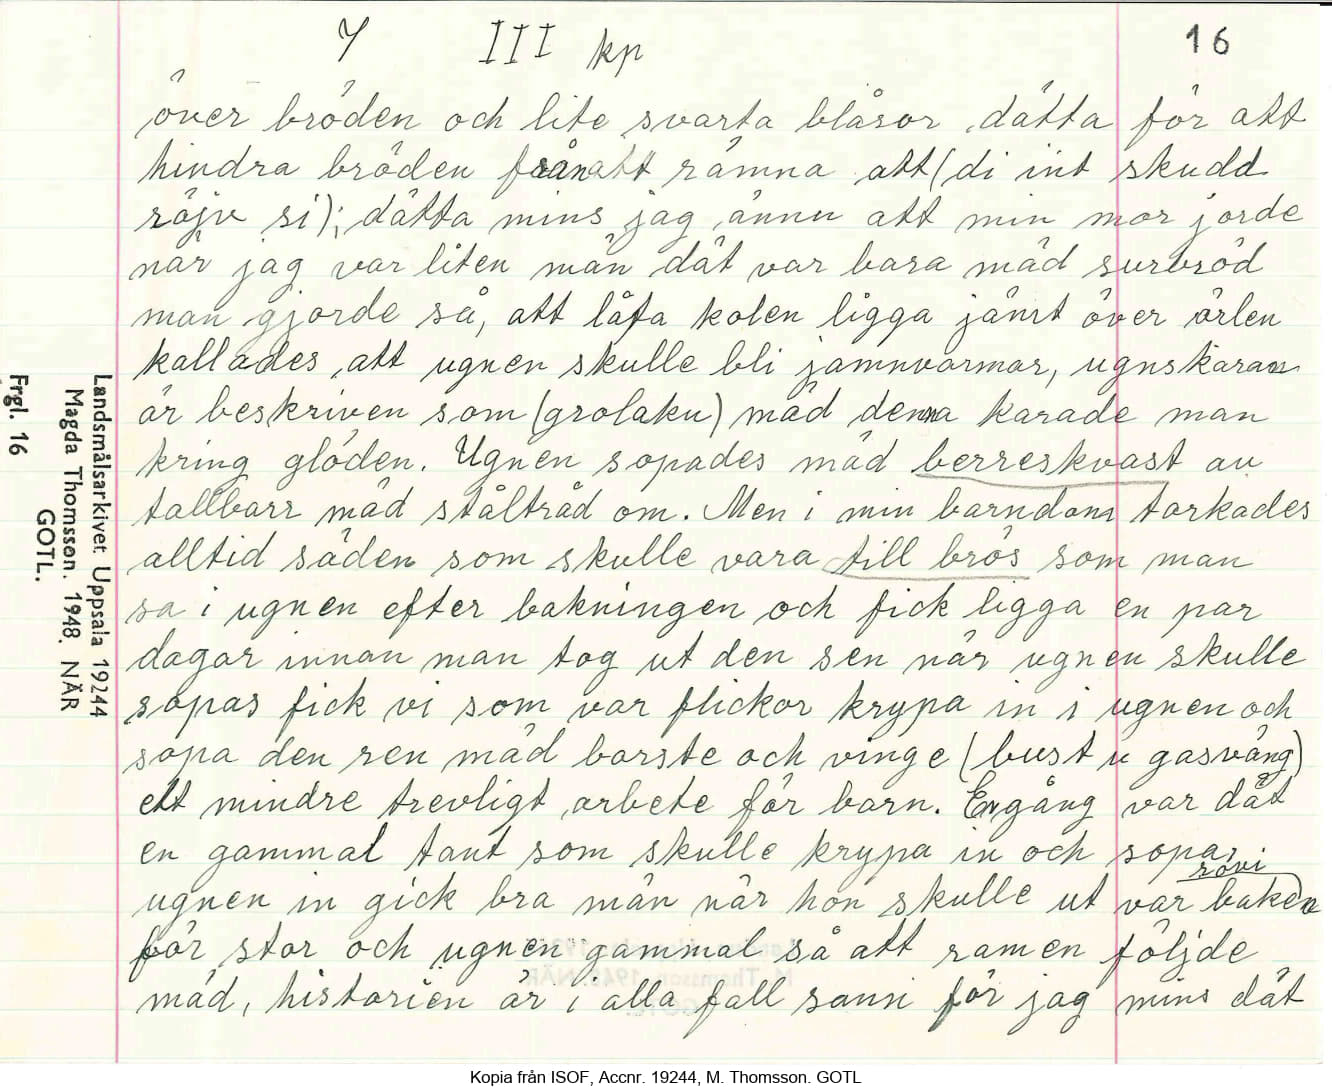 7 III kp 16
över bröden och lite svarta blåsor, dätta för att
hindra bröden från att rämna att (di int skudd
röjv si); dätta mins jag ännu att min mor jorde
när jag var liten män dät var bara mäd surbröd
man gjorde så, att låta kolen ligga jämt över ärlen
kallades, att ugnen skulle bli jamnvarmar, ugnskaran
är beskriven som (grolaku) mäd denna karade man
kring glöden. Ugnen sopades mäd berreskvast av
tallbarr mäd ståltråd om. Men i min barndom torkades
alltid säden som skulle vara till brös som man
sa i ugnen efter bakningen och fick ligga en par
dagar innan man tog ut den sen när ugnen skulle
sopas fick vi som var flickor krypa in i ugnen och
sopa den ren mäd borste och vinge (bust u gasväng)
ett mindre trevligt arbete för barn. Engång var dät
en gammal tant som skulle krypa in och sopa,
rövi
ugnen in gick bra män när hon skulle ut var baken
för stor och ugnen gammal så att ramen följde
mäd, historien är i alla fall sann för jag mins dät
Landsmålsarkivet. Uppsala 19244
Magda Thomsson. 1948. NÄR
GOTL.
Frgl. 16
Kopia från ISOF, Accnr. 19244, M. Thomsson. GOTL